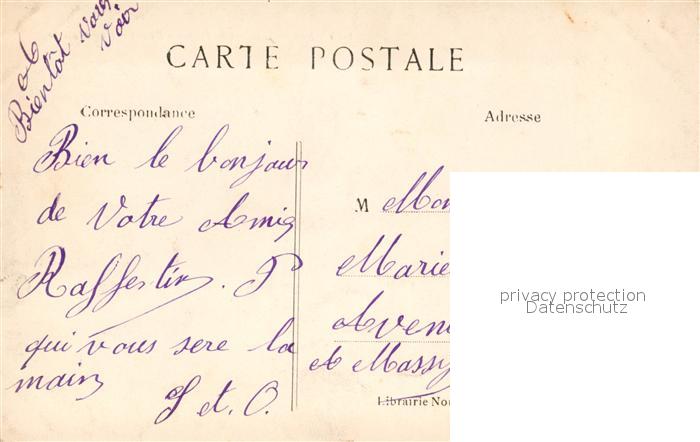 A
Bientôt vous
Voir
CARTE POSTALE
Correspondance
Adresse
Bien le bonjour
de Votre Amie
Raffestin. P
qui vous sere la
main
S et. O.
M
Marie
Aven
A Massy
Librairie Nou
privacy protection
Datenschutz